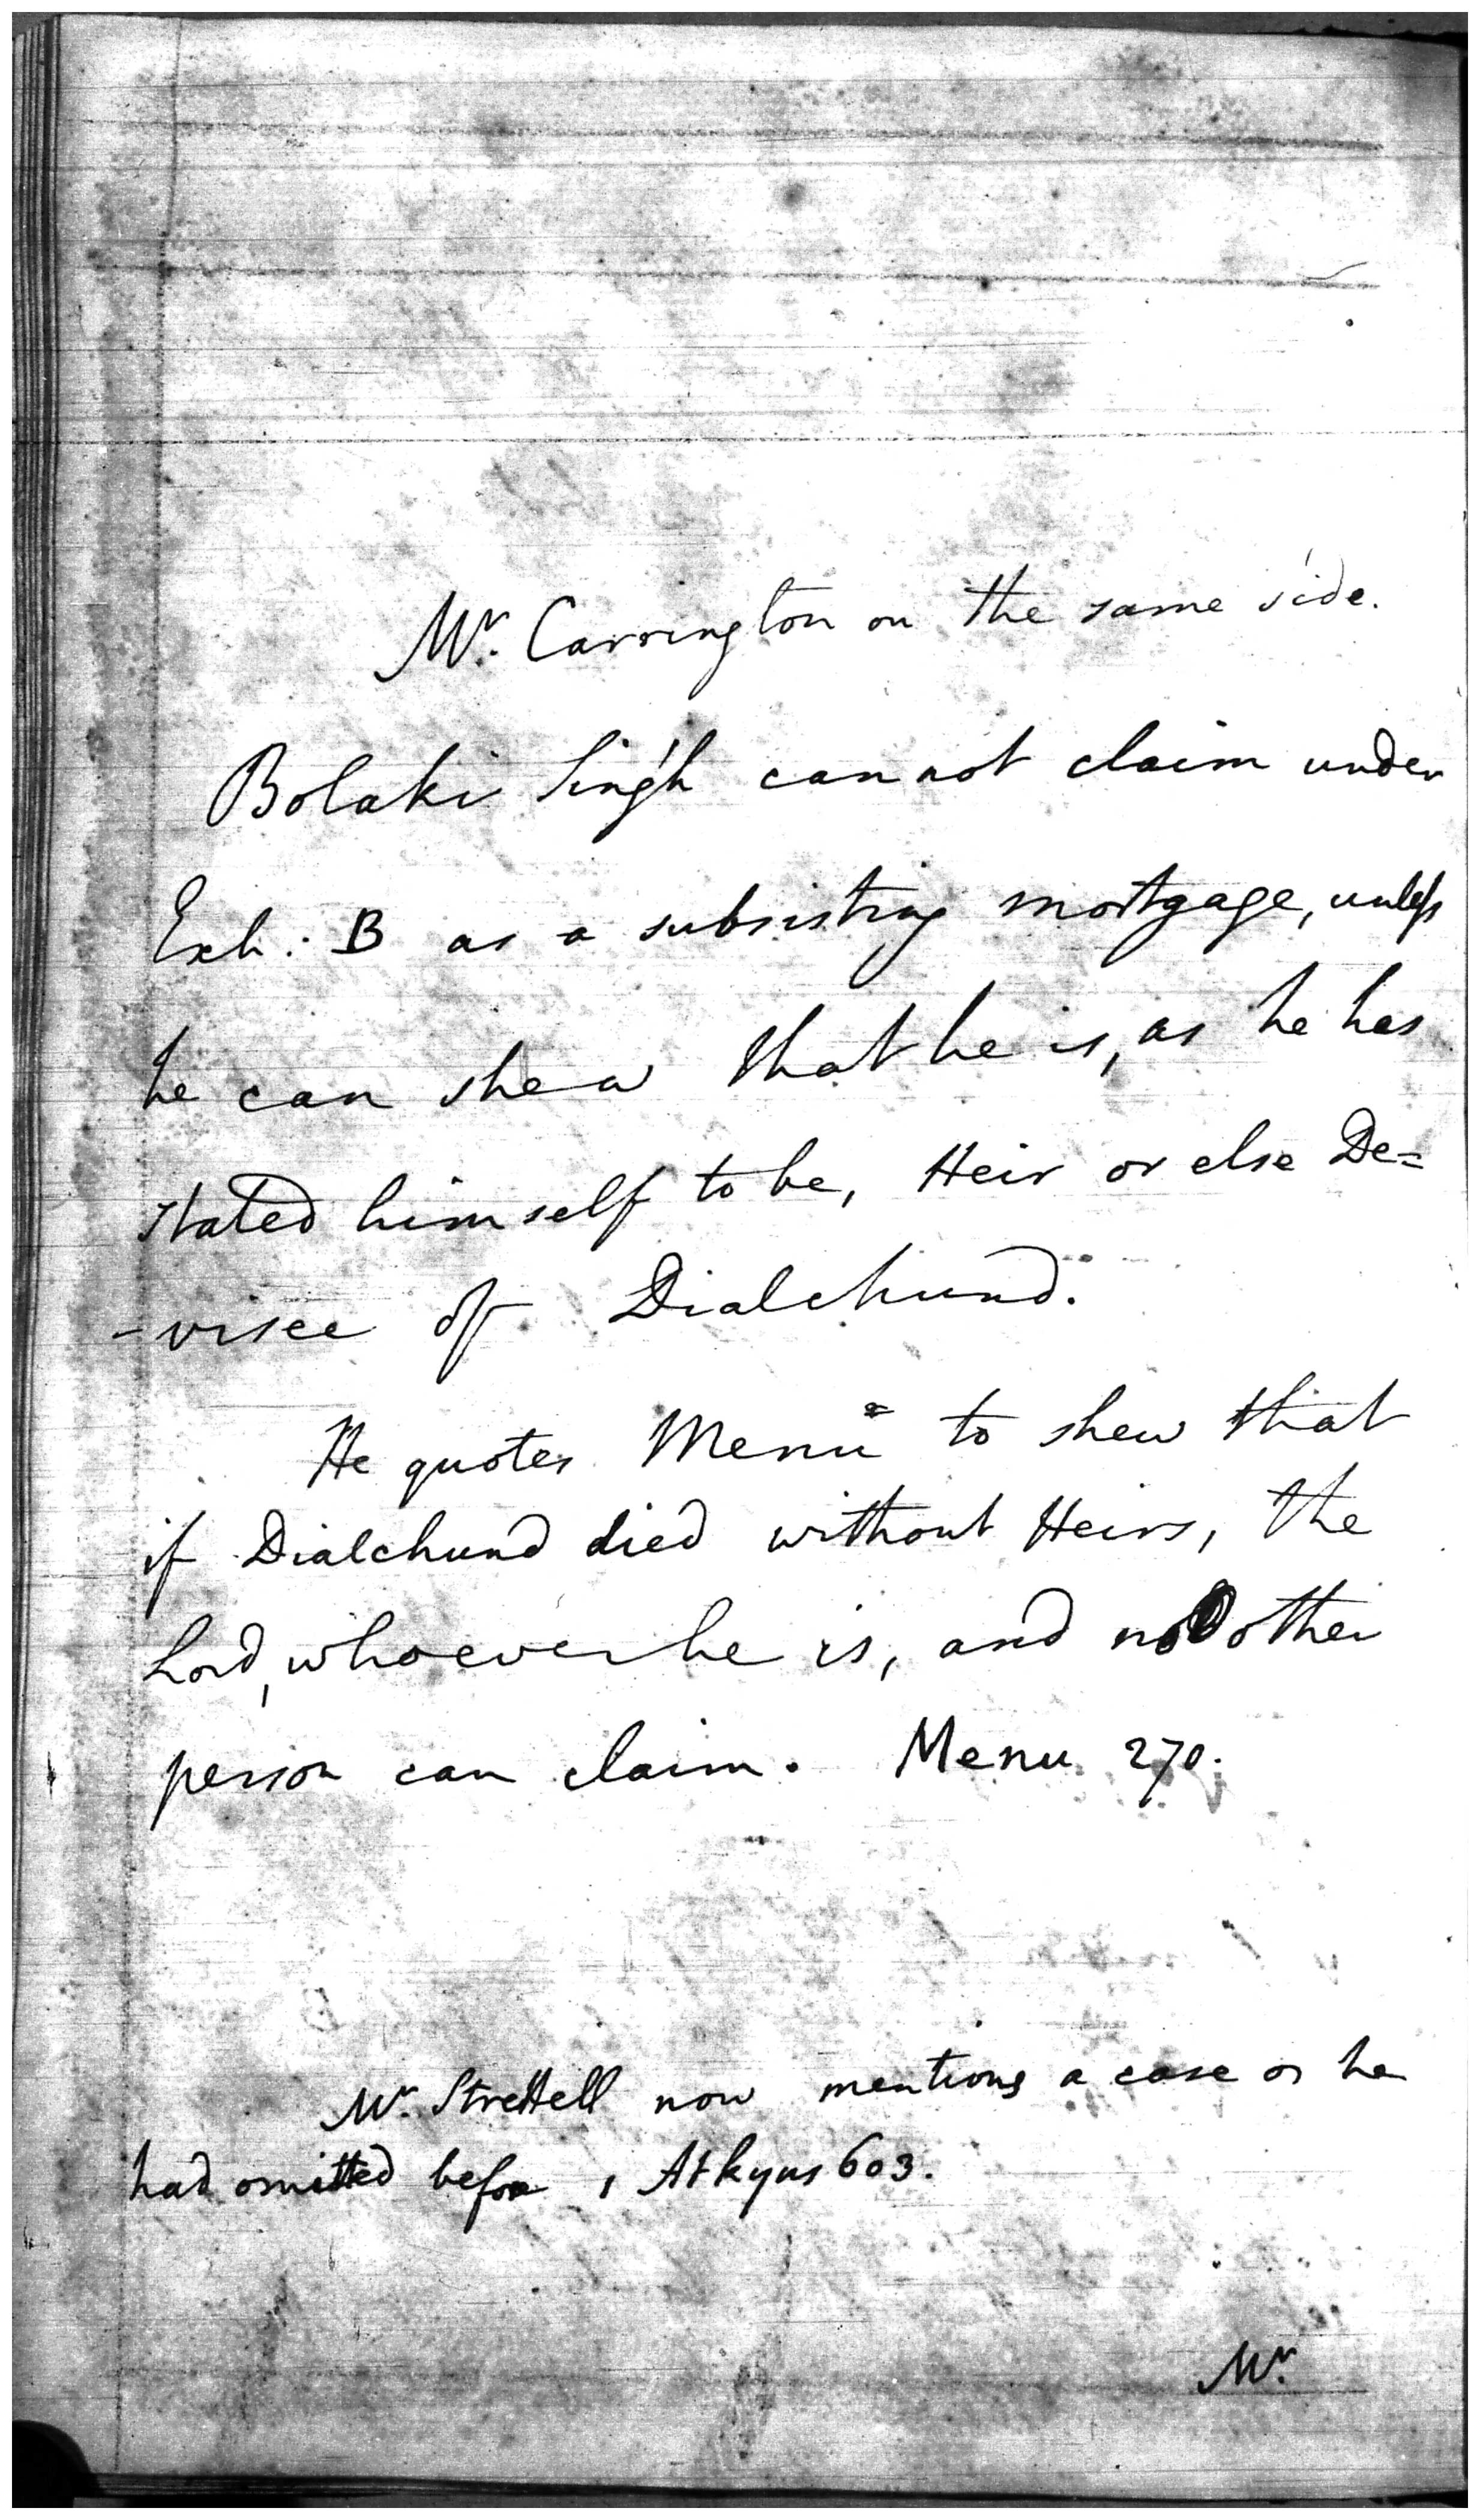 Mr. Carrington on the same side.
Bolaki Singh cannot claim under
Exh: B as a subsisting mortgage, unless
he can shew that he is, as he has
stated himself to be, Heir or else De=
-visee of Dialchund.
He quotes Menu to shew that
if Dialchund died without Heirs, the
Lord, whoever he is, and no other
person can claim. Menu 270.
Mr. Strettell now mentions a case as he
had omitted before 1 Atkyns 603.
Mr.